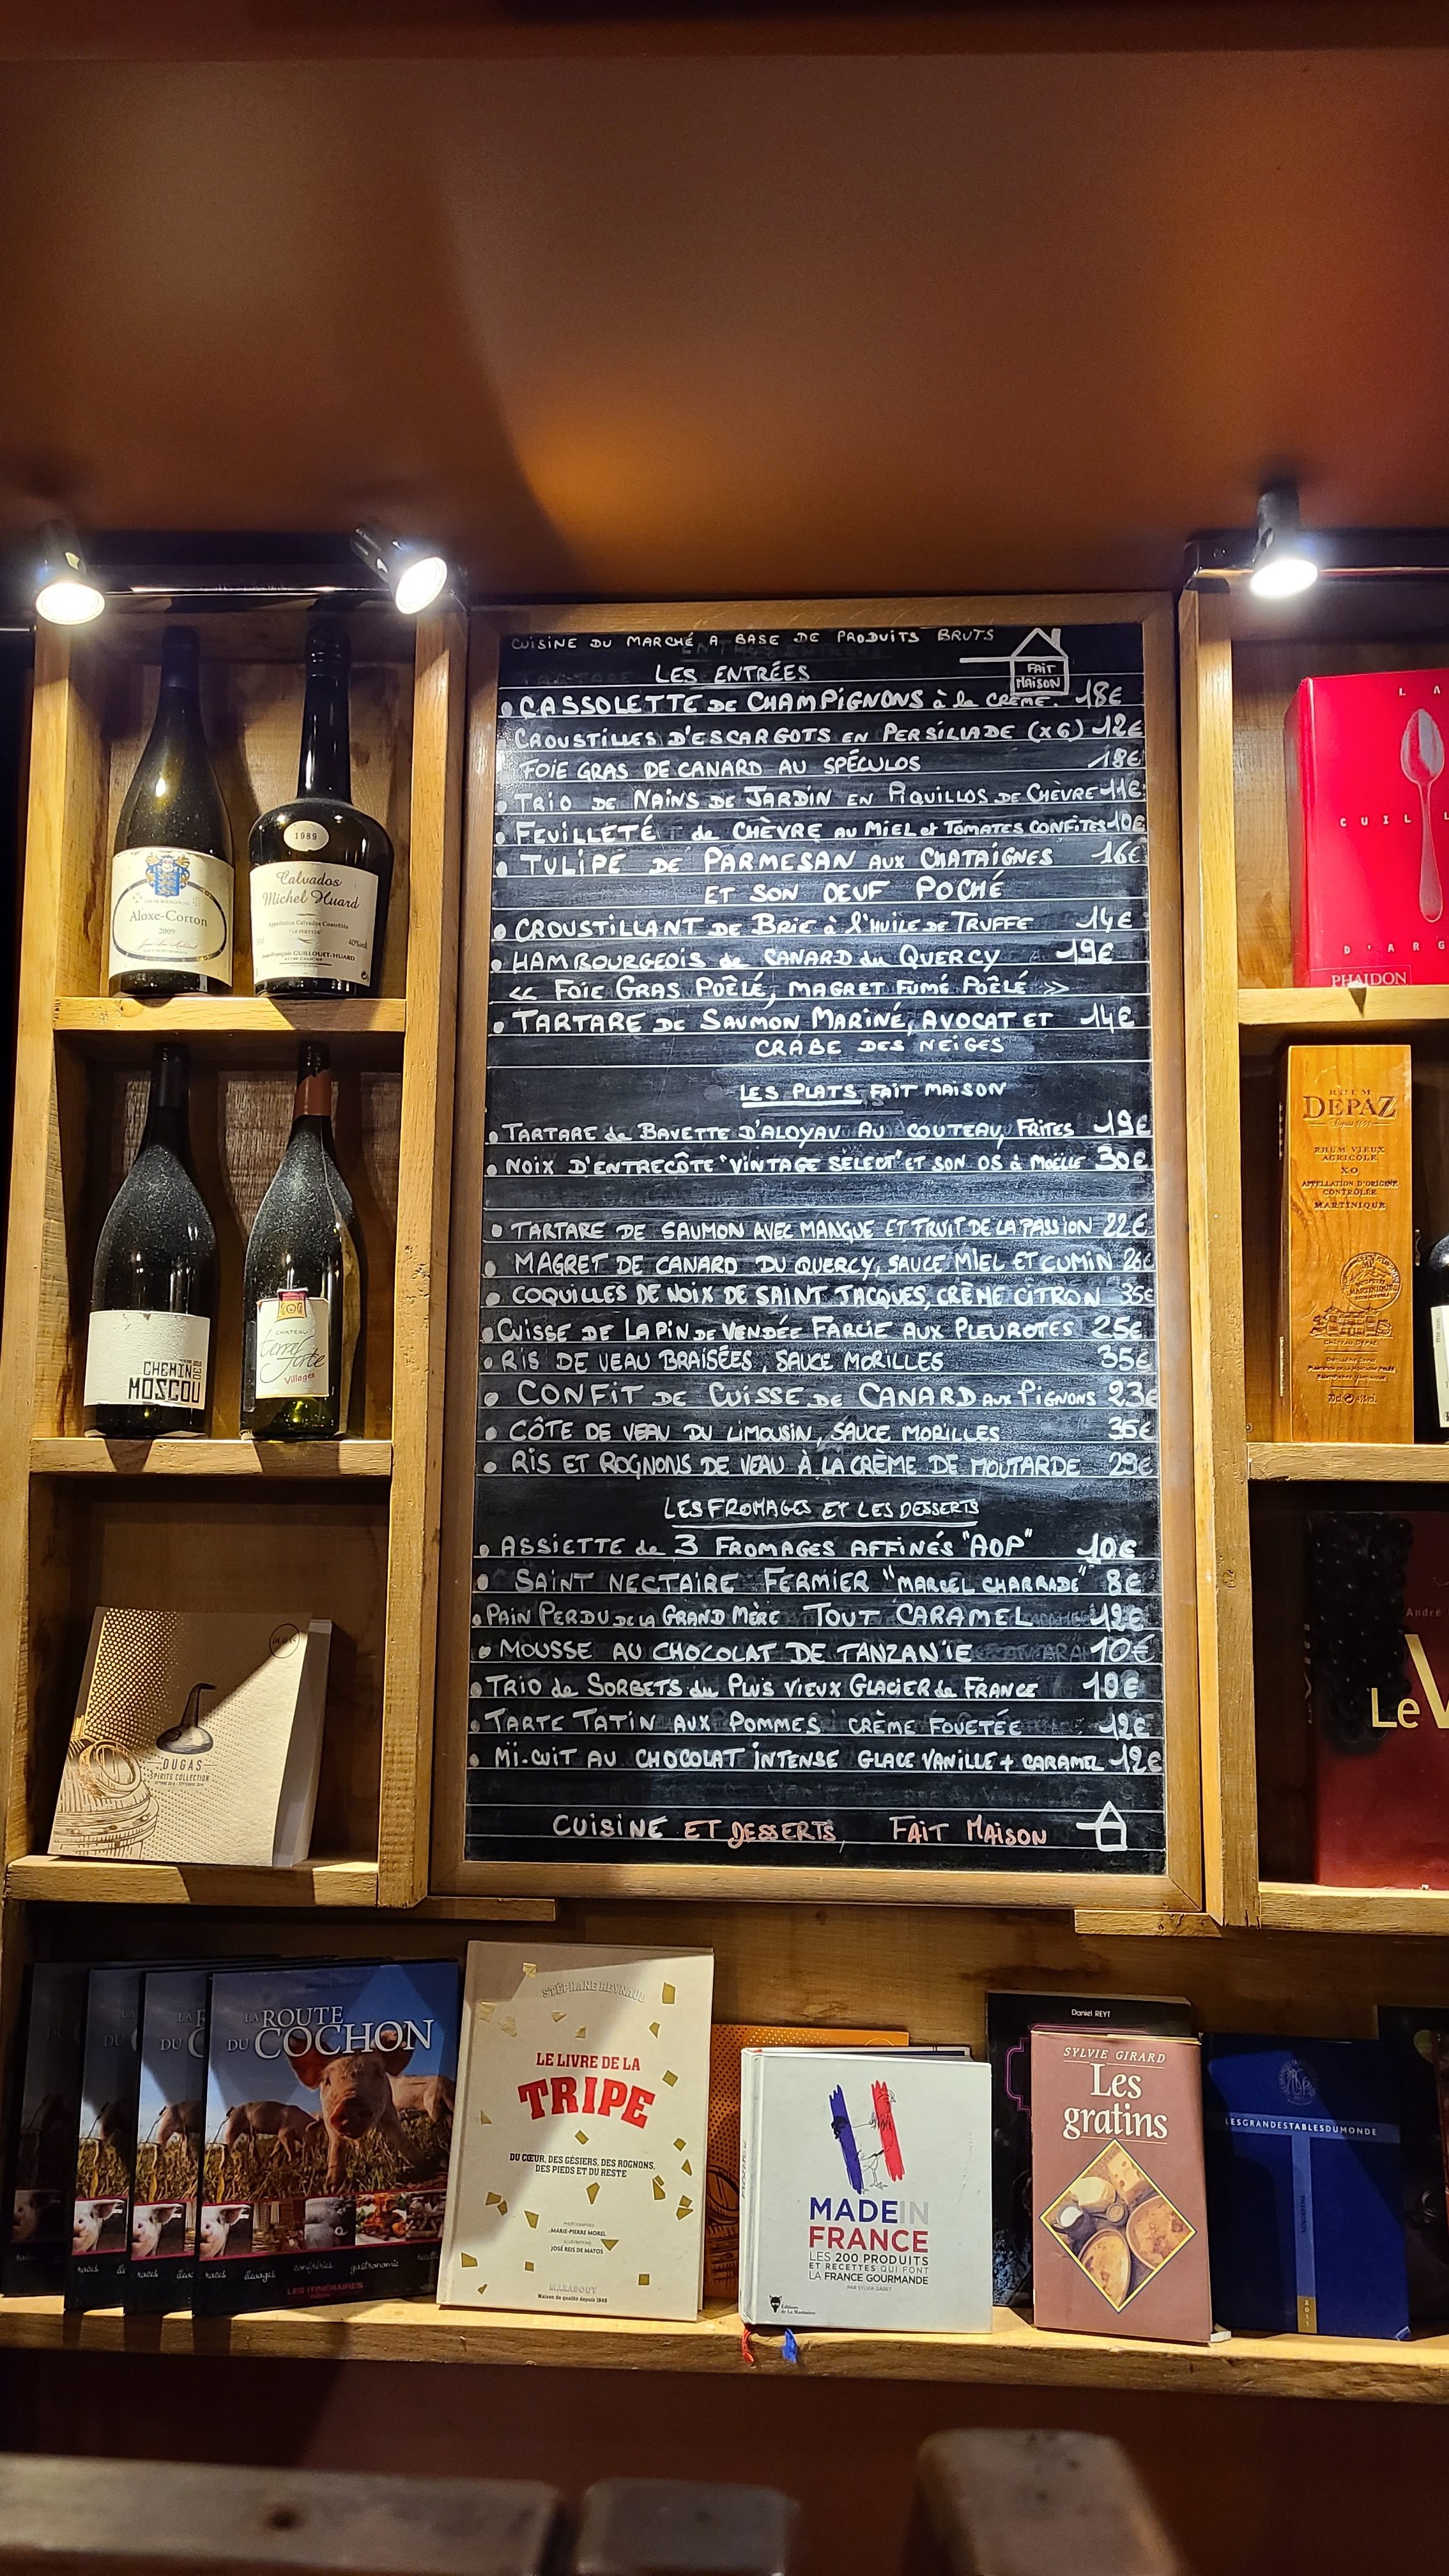 CUISINE DU MARCHÉ A BASE DE PRODUITS BRUTS
FAIT
MAISON
LES ENTRÉES
• CASSOLETTE DE CHAMPIGNONS à la CRÈME. 18€
CROUSTILLES D'ESCARGOTS EN PERSILLADE (x6) 12€
FOIE GRAS DE CANARD AU SPÉCULOS 18€
• TRIO DE NAINS DE JARDIN EN PIQUILLOS DE CHÈVRE 11€
• FEUILLETÉ de CHÈVRE AU MIEL et TOMATES CONFITES 10€
• TULIPE DE PARMESAN AUX CHATAIGNES 16€
ET SON OEUF POCHÉ
• CROUSTILLANT DE BRIE à l'HUILE DE TRUFFE 14€
• HAMBOURGEOIS de CANARD du QUERCY 19€
« FOIE GRAS POÊLÉ, MAGRET FUMÉ POÊLÉ »
• TARTARE DE SAUMON MARINÉ, AVOCAT ET 14€
CRABE DES NEIGES
LES PLATS FAIT MAISON
• TARTARE de BAVETTE D'ALOYAU AU COUTEAU, FRITES 19€
• NOIX D'ENTRECÔTE "VINTAGE SÉLECT" ET SON OS à MOËLLE 30€
• TARTARE DE SAUMON AVEC MANGUE ET FRUIT DE LA PASSION 22€
• MAGRET DE CANARD DU QUERCY, SAUCE MIEL ET CUMIN 26€
• COQUILLES DE NOIX DE SAINT JACQUES, CRÈME CITRON 35€
• CUISSE DE LAPIN DE VENDÉE FARCIE AUX PLEUROTES 25€
• RIS DE VEAU BRAISÉES, SAUCE MORILLES 35€
• CONFIT DE CUISSE DE CANARD AUX PIGNONS 23€
• CÔTE DE VEAU DU LIMOUSIN, SAUCE MORILLES 35€
• RIS ET ROGNONS DE VEAU À LA CRÈME DE MOUTARDE 29€
LES FROMAGES ET LES DESSERTS
• ASSIETTE de 3 FROMAGES AFFINÉS "AOP" 10€
• SAINT NECTAIRE FERMIER "MARCEL CHARRADE" 8€
• PAIN PERDU DE LA GRAND MÈRE TOUT CARAMEL 12€
• MOUSSE AU CHOCOLAT DE TANZANIE 10€
• TRIO de SORBETS du PLUS VIEUX GLACIER de FRANCE 10€
• TARTE TATIN AUX POMMES CRÈME FOUETÉE 12€
• MI-CUIT AU CHOCOLAT INTENSE GLACE VANILLE + CARAMEL 12€
CUISINE ET DESSERTS, FAIT MAISON
Aloxe-Corton
2009
1989
Calvados
Michel Huard
Appellation Calvados Contrôlée
40%vol
Jean-François GUILLOUET-HUARD
CHEMIN
MOSCOU
CHATEAU
Cerra Forte
Villages
DUGAS
SPIRITS COLLECTION
LA
CUILL
D'ARG
PHAIDON
RHUM
DEPAZ
RHUM VIEUX
AGRICOLE
XO
APPELLATION D'ORIGINE
CONTRÔLÉE
MARTINIQUE
André
Le V
LA ROUTE
DU COCHON
races élevages confréries gastronomie
LES ITINÉRAIRES
STÉPHANE REYNAUD
LE LIVRE DE LA
TRIPE
DU CŒUR, DES GÉSIERS, DES ROGNONS,
DES PIEDS ET DU RESTE
PHOTOGRAPHIES
MARIE-PIERRE MOREL
ILLUSTRATIONS
JOSÉ REIS DE MATOS
MARABOUT
Maison de qualité depuis 1949
MADE IN
FRANCE
LES 200 PRODUITS
ET RECETTES QUI FONT
LA FRANCE GOURMANDE
PAR SYLVIA GABET
Éditions
de La Martinière
Daniel REYT
SYLVIE GIRARD
Les
gratins
LESGRANDESTABLESDUMONDE
2011